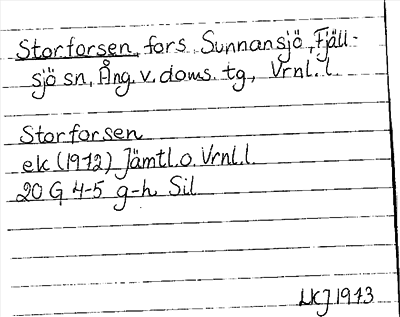 Storforsen, fors, Sunnansjö, Fjäll-
sjö sn, Ång. v. doms. tg, Vrnl. l.
Storforsen
ek (1972) Jämtl. o. Vrnl. l.
20 G 4-5 g-h Sil
LKJ 1973